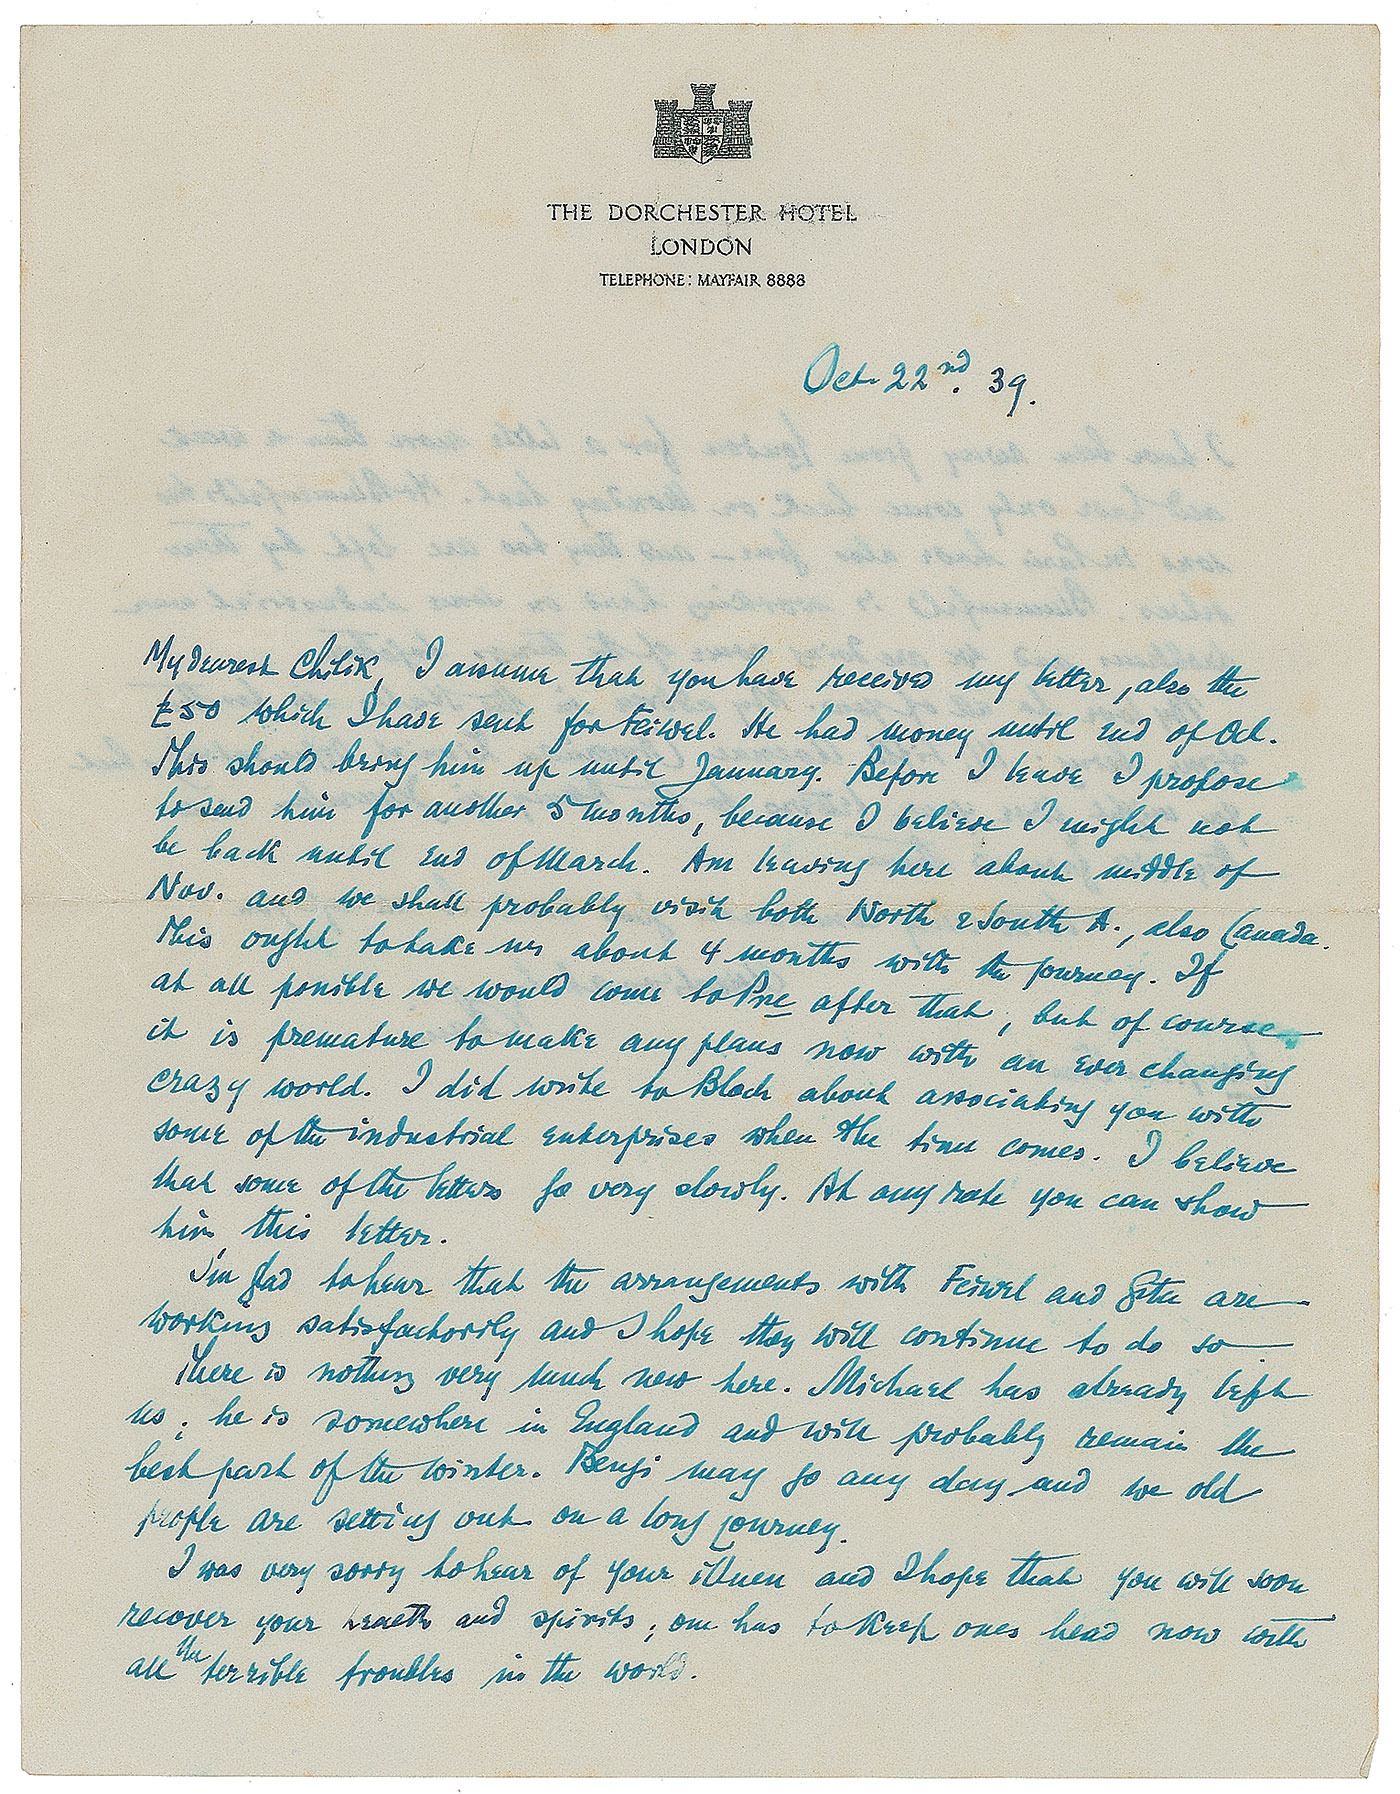 THE DORCHESTER HOTEL
LONDON
TELEPHONE: MAYFAIR 8888
Oct. 22nd. 39.
My dearest Chilik, I assume that you have received my letter, also the
£50 which I have sent for Feiwel. He had money until end of Oct.
This should bring him up until January. Before I leave I propose
to send him for another 5 months, because I believe I might not
be back until end of March. Am leaving here about middle of
Nov. and we shall probably visit both North & South A., also Canada.
This ought to take us about 4 months with the journey. If
at all possible we would come to after that, but of course
it is premature to make any plans now with an ever changing
crazy world. I did write to Bloch about associating you with
some of the industrial enterprises when the time comes. I believe
that some of the letters go very slowly. At any rate you can show
him this letter.
I'm glad to hear that the arrangements with Feiwel and Gita are
working satisfactorily and I hope they will continue to do so
There is nothing very much new here. Michael has already left
us; he is somewhere in England and will probably remain the
best part of the winter. Benji may go any day and we old
people are setting out on a long journey.
I was very sorry to hear of your illness and I hope that you will soon
recover your health and spirits; one has to keep ones head now with
all the terrible troubles in the world.